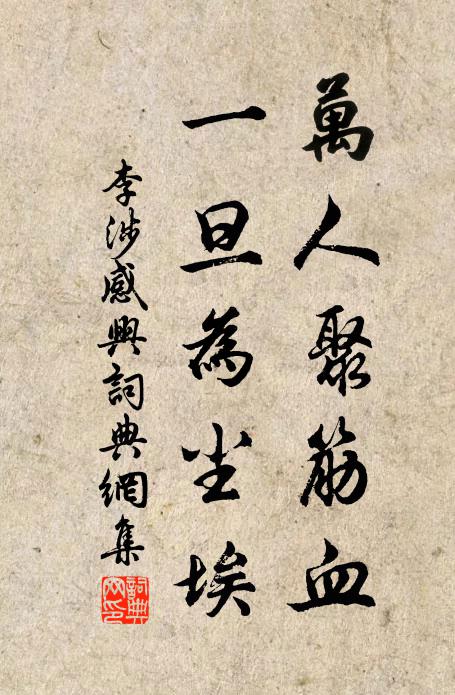 萬人聚筋血
一旦為尘埃
李涉感興詞典網集
詞典網印